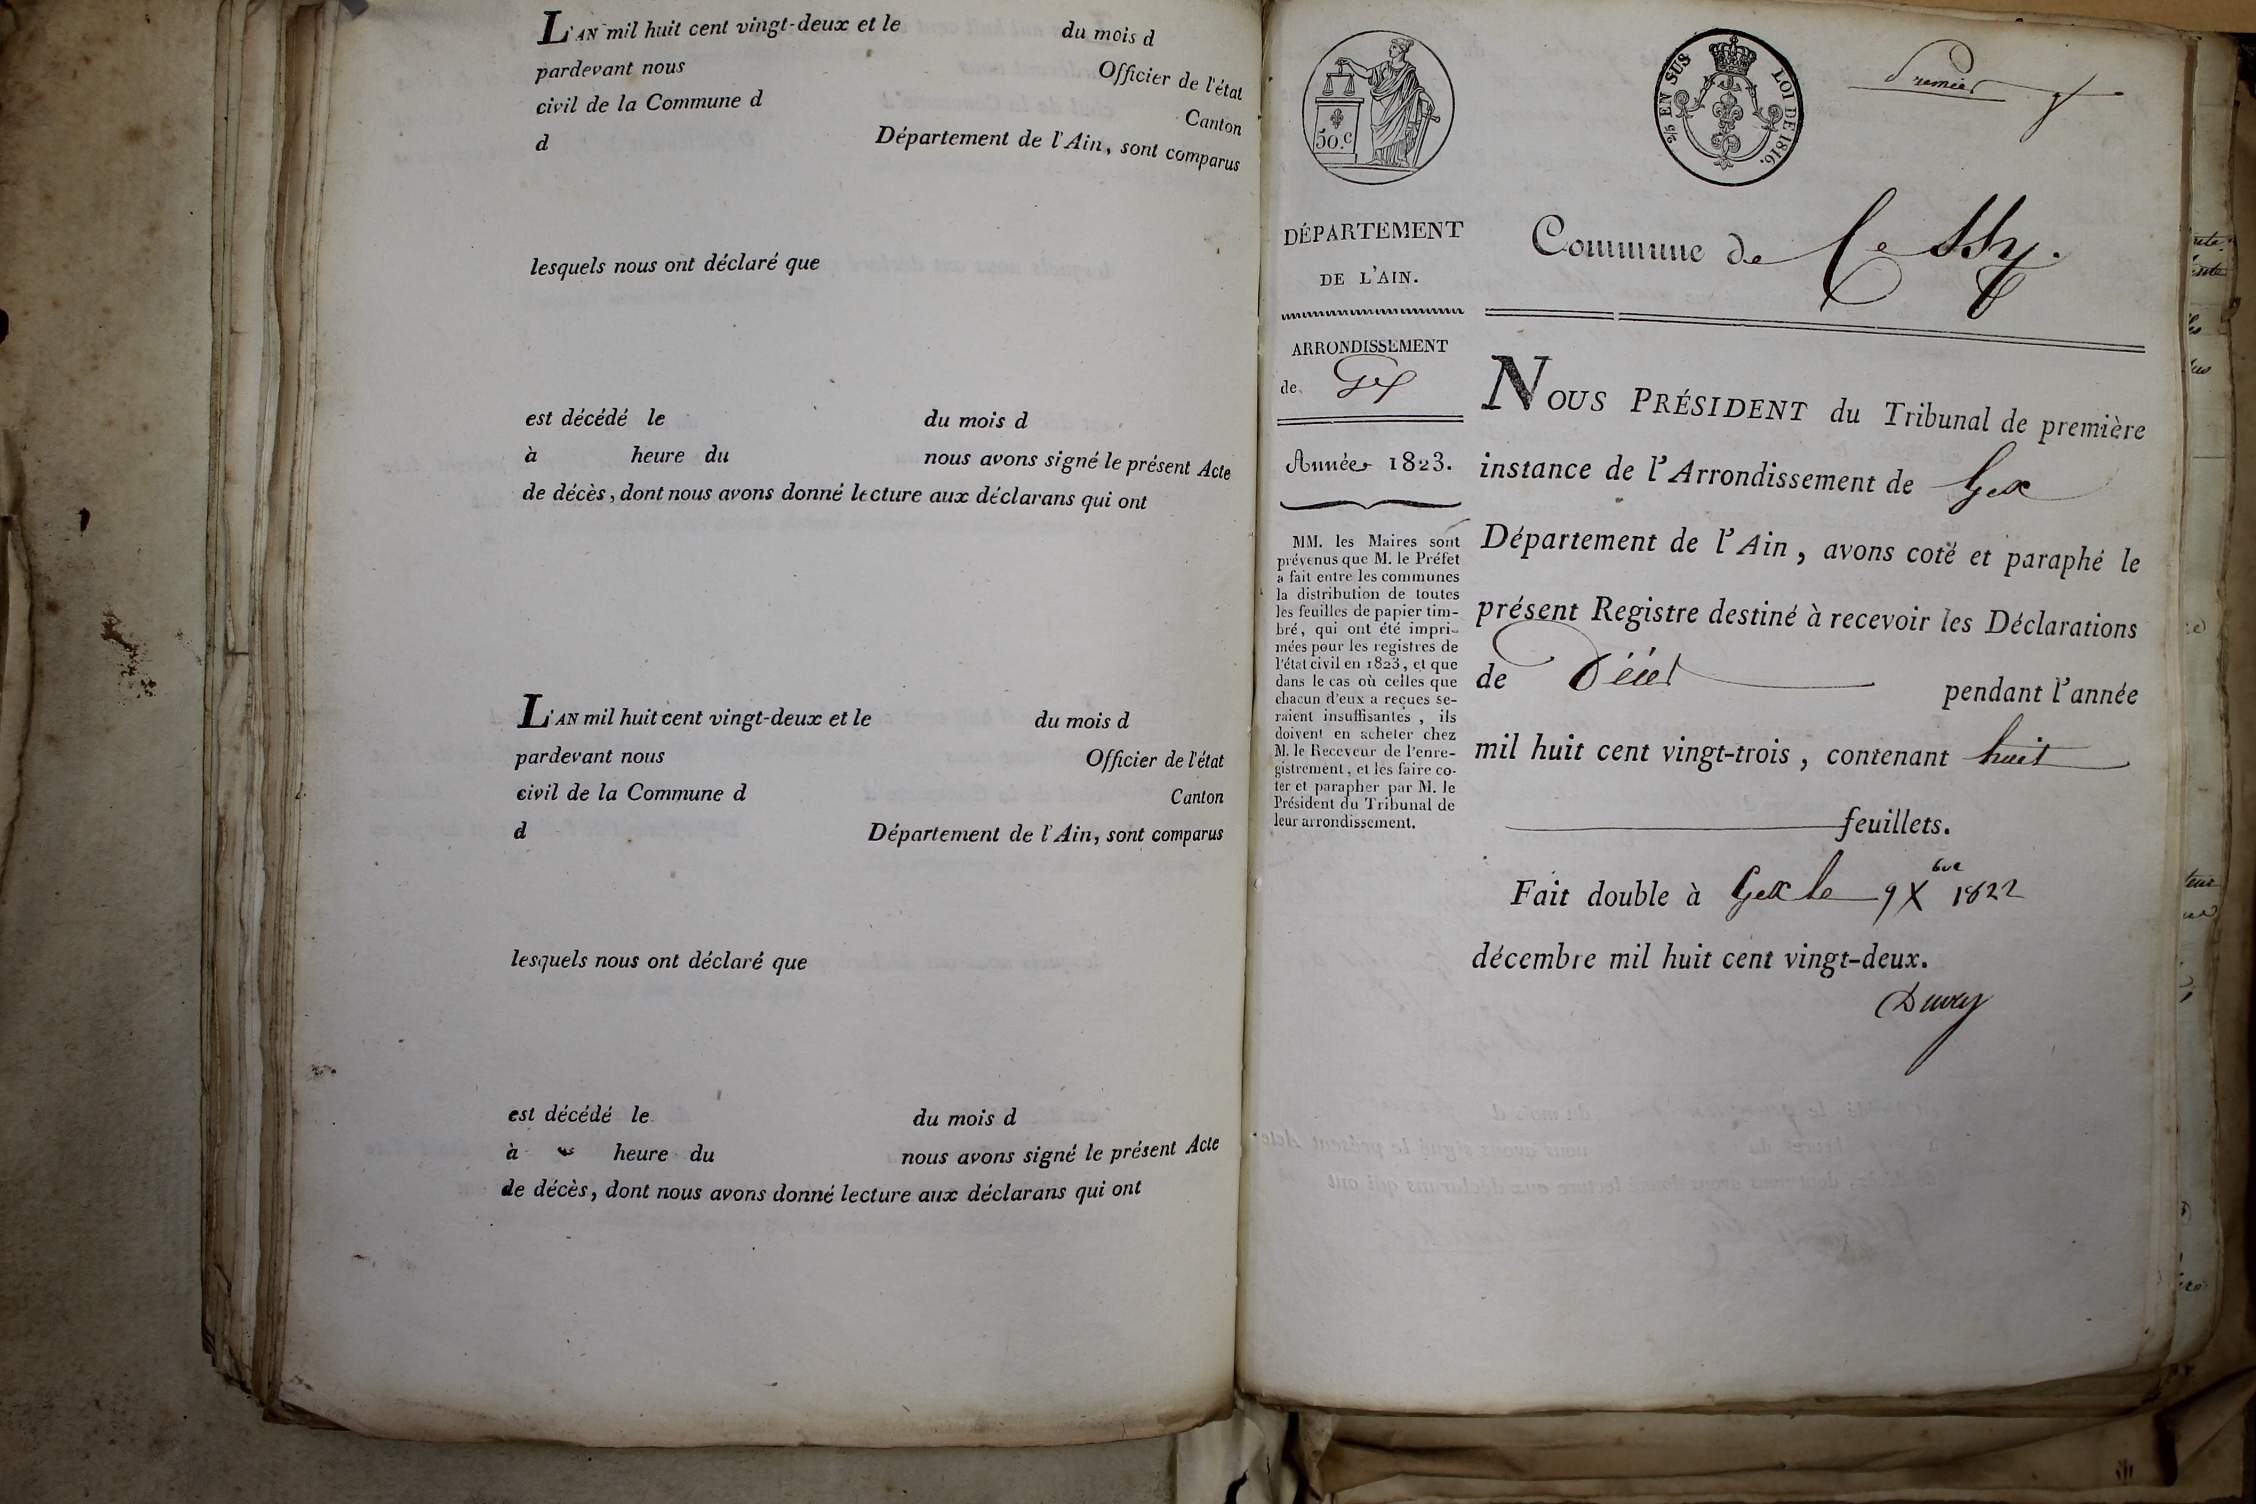 L'AN mil huit cent vingt-deux et le du mois d
pardevant nous Officier de l'état
civil de la Commune d Canton
d Département de l'Ain, sont comparus
lesquels nous ont déclaré que
est décédé le du mois d
à heure du nous avons signé le présent Acte
de décès, dont nous avons donné lecture aux déclarans qui ont
L'AN mil huit cent vingt-deux et le du mois d
pardevant nous Officier de l'état
civil de la Commune d Canton
d Département de l'Ain, sont comparus
lesquels nous ont déclaré que
est décédé le du mois d
à heure du nous avons signé le présent Acte
de décès, dont nous avons donné lecture aux déclarans qui ont
50.c
2/5 EN SUS LOI DE 1816.
Premier
DÉPARTEMENT
DE L'AIN.
ARRONDISSEMENT
de Gex
Année 1823.
MM. les Maires sont
prévenus que M. le Préfet
a fait entre les communes
la distribution de toutes
les feuilles de papier tim-
bré, qui ont été impri-
mées pour les registres de
l'état civil en 1823, et que
dans le cas où celles que
chacun d'eux a reçues se-
raient insuffisantes, ils
doivent en acheter chez
M. le Receveur de l'enre-
gistrement, et les faire co-
ter et parapher par M. le
Président du Tribunal de
leur arrondissement.
Commune de Cessy.
NOUS PRÉSIDENT du Tribunal de première
instance de l'Arrondissement de Gex
Département de l'Ain, avons coté et paraphé le
présent Registre destiné à recevoir les Déclarations
de Décès pendant l'année
mil huit cent vingt-trois, contenant huit
feuillets.
Fait double à Gex le 9 Xbre 1822
décembre mil huit cent vingt-deux.